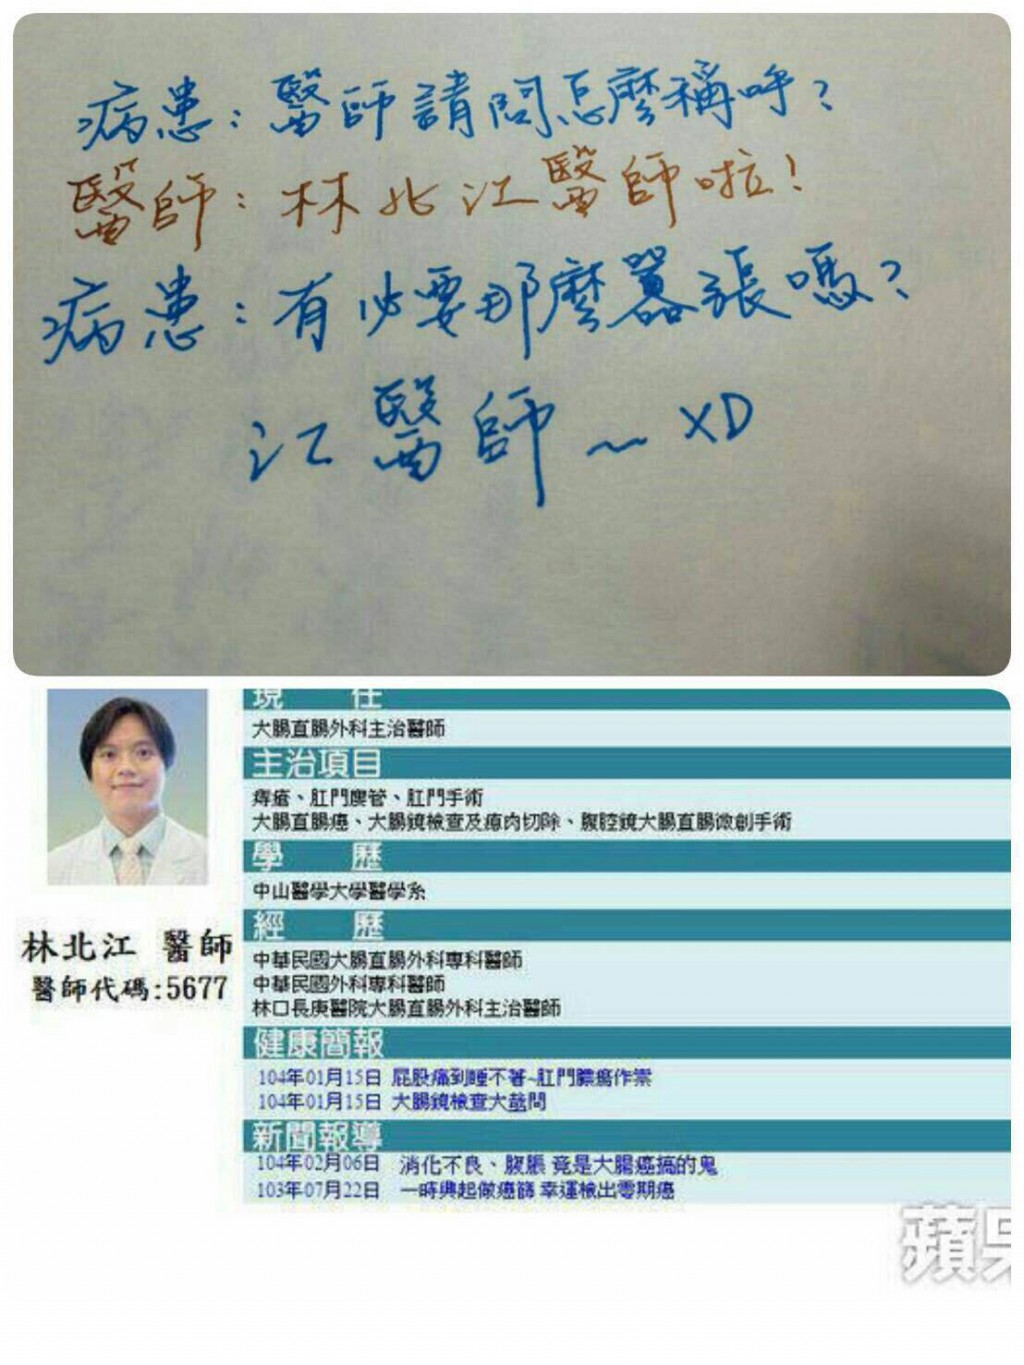 病患：醫師請問怎麼稱呼？
醫師：林北江醫師啦！
病患：有必要那麼囂張嗎？
江醫師～XD
現 任
大腸直腸外科主治醫師
主治項目
痔瘡、肛門廔管、肛門手術
大腸直腸癌、大腸鏡檢查及瘜肉切除、腹腔鏡大腸直腸微創手術
學 歷
中山醫學大學醫學系
經 歷
中華民國大腸直腸外科專科醫師
中華民國外科專科醫師
林口長庚醫院大腸直腸外科主治醫師
林北江 醫師
醫師代碼:5677
健康簡報
104年01月15日 屁股痛到睡不著~肛門膿瘍作祟
104年01月15日 大腸鏡檢查大哉問
新聞報導
104年02月06日 消化不良、腹脹 竟是大腸癌搞的鬼
103年07月22日 一時興起做癌篩 幸運檢出零期癌
蘋果